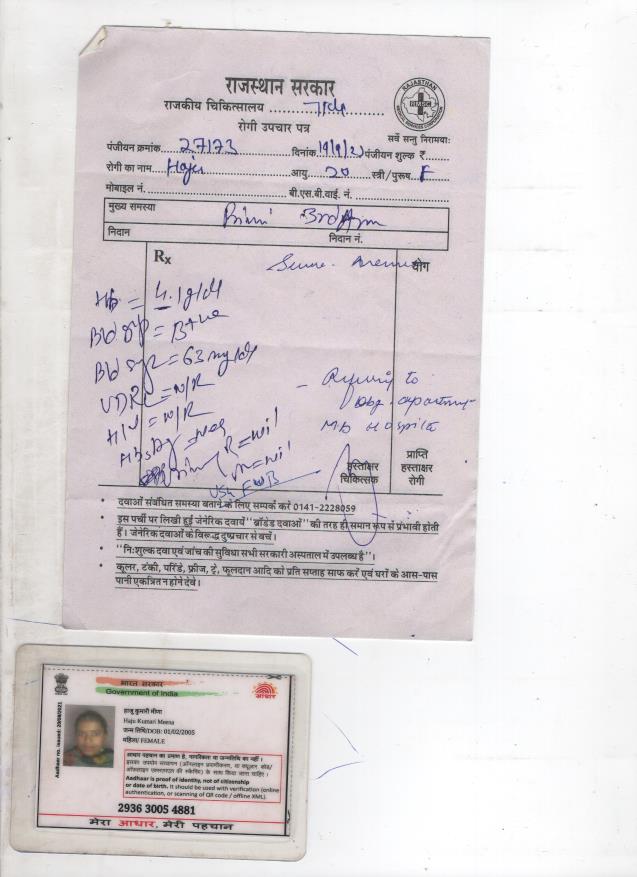 राजस्थान सरकार
राजकीय चिकित्सालय
रोगी उपचार पत्र
RAJASTHAN
RMSC
MEDICAL SERVICES CORPORATION
सर्वे सन्तु निरामयाः
पंजीयन क्रमांक 27173 दिनांक पंजीयन शुल्क ₹
रोगी का नाम Haju आयु 20 स्त्री/पुरूष F
मोबाइल नं. बी.एस.बी.वाई. नं.
मुख्य समस्या
निदान निदान नं.
Rx Severe Anemia योग
Hb = 4.1 g/dl
Bld grp = B+ve
Bld sgr = 63 mg/dl
VDRL = N/R
HIV = N/R
HbsAg = Neg
Referring to
department
Hospital
= Nil
= Nil
USG FWB
हस्ताक्षर चिकित्सक
प्राप्ति हस्ताक्षर रोगी
• दवाओं संबंधित समस्या बताने के लिए सम्पर्क करें 0141-2228059
• इस पर्ची पर लिखी हुई जेनेरिक दवायें "ब्रॉडेड दवाओं" की तरह ही समान रूप से प्रभावी होती
हैं। जेनेरिक दवाओं के विरूद्ध दुष्प्रचार से बचें।
• "निःशुल्क दवा एवं जांच की सुविधा सभी सरकारी अस्पताल में उपलब्ध है"।
• कूलर, टंकी, परिंडे, फ्रीज, ट्रे, फूलदान आदि को प्रति सप्ताह साफ करें एवं घरों के आस-पास
पानी एकत्रित न होने देवें।
भारत सरकार
Government of India
आधार
Aadhaar no. issued: 20/08/2021
हाजू कुमारी मीणा
Haju Kumari Meena
जन्म तिथि/DOB: 01/02/2005
महिला/ FEMALE
आधार पहचान का प्रमाण है, नागरिकता या जन्मतिथि का नहीं।
इसका उपयोग सत्यापन (ऑनलाइन प्रमाणीकरण, या क्यूआर कोड/
ऑफ़लाइन एक्सएमएल की स्कैनिंग) के साथ किया जाना चाहिए।
Aadhaar is proof of identity, not of citizenship
or date of birth. It should be used with verification (online
authentication, or scanning of QR code / offline XML).
2936 3005 4881
मेरा आधार, मेरी पहचान